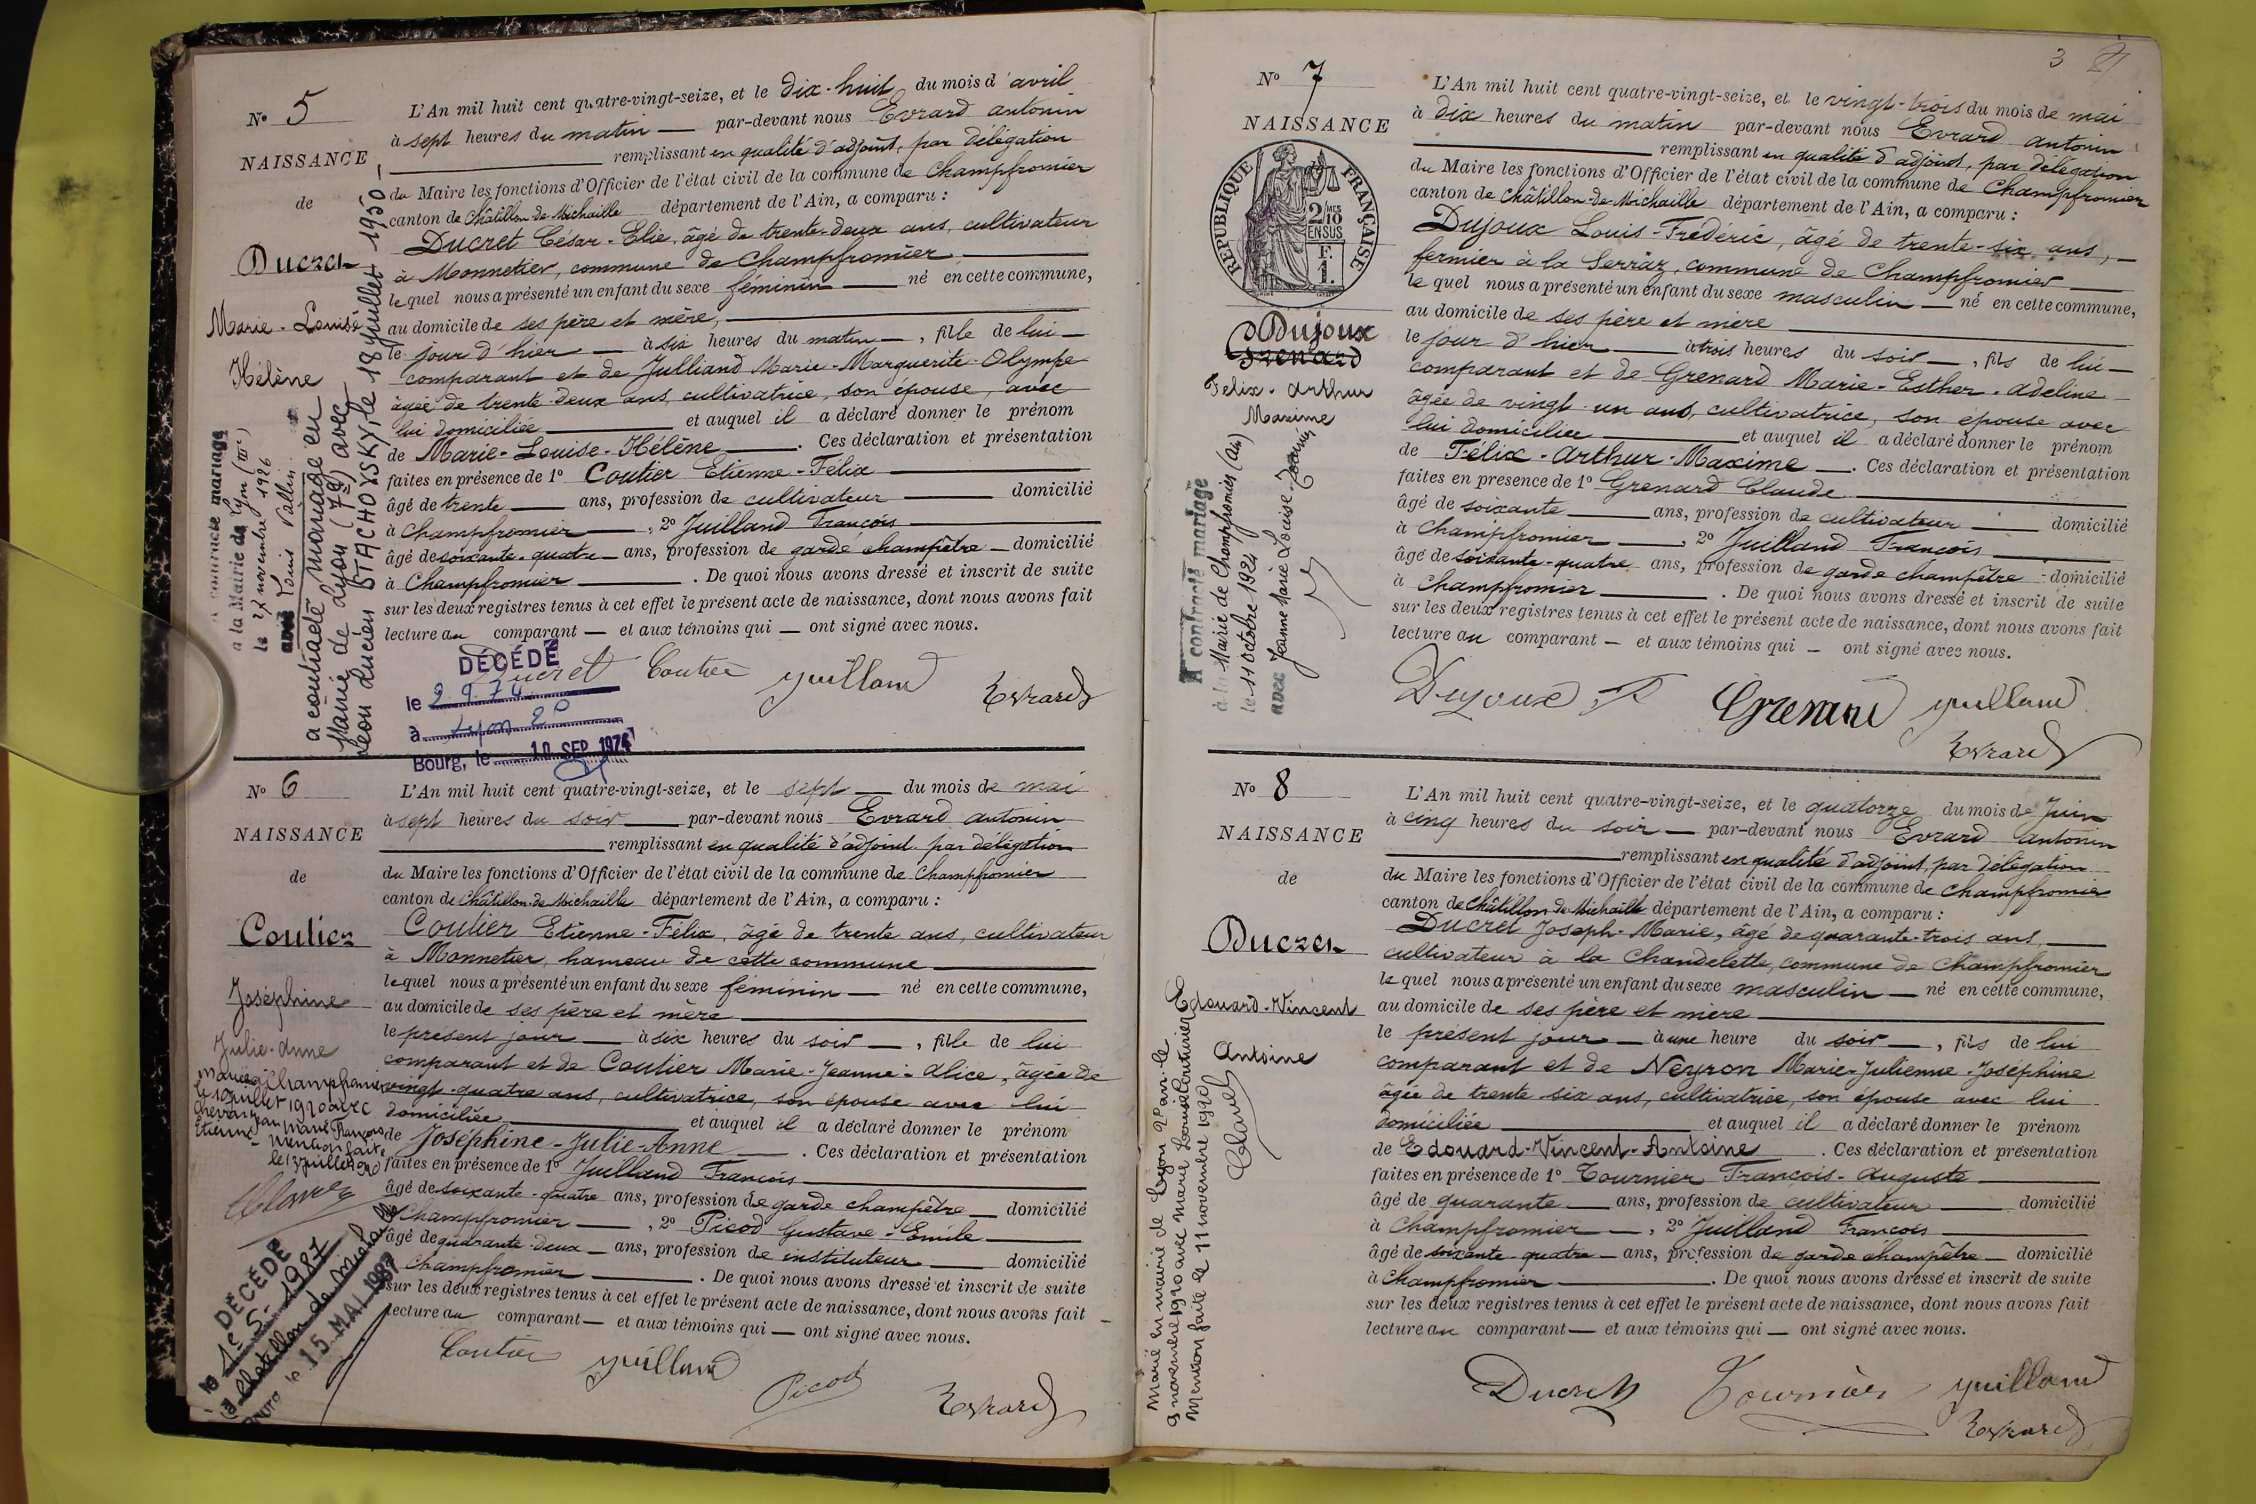 N° 5
NAISSANCE
de
Ducret
Marie-Louise
Hélène
A contracté mariage
à la Mairie de Lyon (IIIe)
le 27 novembre 1926
avec Louis Vallin
a contracté mariage en
Mairie de Lyon (7e) avec
Léon Lucien STACHOVSKY, le 18 juillet 1950
L'An mil huit cent quatre-vingt-seize, et le dix-huit du mois d'avril
à sept heures du matin — par-devant nous Evrard Antonin
remplissant en qualité d'adjoint, par délégation
du Maire les fonctions d'Officier de l'état civil de la commune de Champfromier
canton de Châtillon-de-Michaille département de l'Ain, a comparu :
Ducret César-Elie, âgé de trente-deux ans, cultivateur
à Monnetier, commune de Champfromier,
lequel nous a présenté un enfant du sexe féminin — né en cette commune,
au domicile de ses père et mère,
le jour d'hier — à six heures du matin —, fille de lui
comparant et de Julliand Marie-Marguerite-Olympe
âgée de trente-deux ans, cultivatrice, son épouse, avec
lui domiciliée — et auquel il a déclaré donner le prénom
de Marie-Louise-Hélène — . Ces déclaration et présentation
faites en présence de 1° Coutier Etienne-Félix
âgé de trente — ans, profession de cultivateur — domicilié
à Champfromier — , 2° Juilland François
âgé de soixante-quatre — ans, profession de garde champêtre — domicilié
à Champfromier — . De quoi nous avons dressé et inscrit de suite
sur les deux registres tenus à cet effet le présent acte de naissance, dont nous avons fait
lecture au comparant — et aux témoins qui — ont signé avec nous.
Ducret Coutier Juilland Evrard
DÉCÉDÉ
le 2.9.74
à Lyon 2e
Bourg, le 10 SEP. 1974
N° 6
NAISSANCE
de
Coutier
Joséphine
Julie-Anne
Mariée à Champfromier
le 10 juillet 1920 avec
Jean Marie François
Etienne
Mention faite
le 13 juillet 1920
Clavel
DÉCÉDÉ
le 1er 5. 1987
à Chatillon de Michaille
Bourg le 15. MAI 1987
L'An mil huit cent quatre-vingt-seize, et le sept — du mois de mai
à sept heures du soir — par-devant nous Evrard Antonin
remplissant en qualité d'adjoint par délégation
du Maire les fonctions d'Officier de l'état civil de la commune de Champfromier
canton de Châtillon-de-Michaille département de l'Ain, a comparu :
Coutier Etienne-Félix, âgé de trente ans, cultivateur
à Monnetier, hameau de cette commune
lequel nous a présenté un enfant du sexe féminin — né en cette commune,
au domicile de ses père et mère
le présent jour — à six heures du soir —, fille de lui
comparant et de Coutier Marie-Jeanne-Alice, âgée de
vingt-quatre ans, cultivatrice, son épouse avec lui
domiciliée — et auquel il a déclaré donner le prénom
de Joséphine-Julie-Anne — . Ces déclaration et présentation
faites en présence de 1° Juilland François
âgé de soixante-quatre ans, profession de garde champêtre — domicilié
à Champfromier — , 2° Picod Gustave-Emile
âgé de quarante-deux — ans, profession de instituteur — domicilié
à Champfromier — . De quoi nous avons dressé et inscrit de suite
sur les deux registres tenus à cet effet le présent acte de naissance, dont nous avons fait
lecture au comparant — et aux témoins qui — ont signé avec nous.
Coutier Juilland Picod Evrard
3
N° 7
NAISSANCE
de
RÉPUBLIQUE FRANÇAISE
2/10 MES
EN SUS
F.
1.
Dujoux
Grenard
Félix-Arthur
Maxime
A contracté mariage
à la Mairie de Champfromier (Ain)
le 11 Octobre 1924
avec Jeanne Marie Louise
L'An mil huit cent quatre-vingt-seize, et le vingt-trois du mois de mai
à dix heures du matin par-devant nous Evrard Antonin
remplissant en qualité d'adjoint, par délégation
du Maire les fonctions d'Officier de l'état civil de la commune de Champfromier
canton de Châtillon-de-Michaille département de l'Ain, a comparu :
Dujoux Louis-Frédéric, âgé de trente-six ans, —
fermier à la Serraz, commune de Champfromier —
lequel nous a présenté un enfant du sexe masculin — né en cette commune,
au domicile de ses père et mère
le jour d'hier — à trois heures du soir —, fils de lui —
comparant et de Grenard Marie-Esther-Adeline
âgée de vingt-un ans, cultivatrice, son épouse avec
lui domiciliée — et auquel il a déclaré donner le prénom
de Félix-Arthur-Maxime — . Ces déclaration et présentation
faites en présence de 1° Grenard Claude
âgé de soixante — ans, profession de cultivateur — domicilié
à Champfromier — , 2° Juilland François
âgé de soixante-quatre ans, profession de garde champêtre - domicilié
à Champfromier — . De quoi nous avons dressé et inscrit de suite
sur les deux registres tenus à cet effet le présent acte de naissance, dont nous avons fait
lecture au comparant — et aux témoins qui — ont signé avec nous.
Dujoux Grenard Juilland
Evrard
N° 8
NAISSANCE
de
Ducret
Edouard-Vincent
Antoine
Clavel
Marié en mairie de Lyon le
9 novembre 1920 avec Marie Louise
Mention faite le 11 novembre 1920
L'An mil huit cent quatre-vingt-seize, et le quatorze du mois de Juin
à cinq heures du soir — par-devant nous Evrard Antonin
remplissant en qualité d'adjoint, par délégation
du Maire les fonctions d'Officier de l'état civil de la commune de Champfromier
canton de Châtillon-de-Michaille département de l'Ain, a comparu :
Ducret Joseph-Marie, âgé de quarante-trois ans, —
cultivateur à la Chandelette, commune de Champfromier
lequel nous a présenté un enfant du sexe masculin — né en cette commune,
au domicile de ses père et mère
le présent jour — à une heure du soir —, fils de lui
comparant et de Neyron Marie-Julienne-Joséphine
âgée de trente six ans, cultivatrice, son épouse avec lui
domiciliée — et auquel il a déclaré donner le prénom
de Edouard-Vincent-Antoine . Ces déclaration et présentation
faites en présence de 1° Tournier François-Auguste
âgé de quarante — ans, profession de cultivateur — domicilié
à Champfromier — , 2° Juilland François
âgé de soixante quatre — ans, profession de garde champêtre — domicilié
à Champfromier — . De quoi nous avons dressé et inscrit de suite
sur les deux registres tenus à cet effet le présent acte de naissance, dont nous avons fait
lecture au comparant — et aux témoins qui — ont signé avec nous.
Ducret Tournier Juilland
Evrard